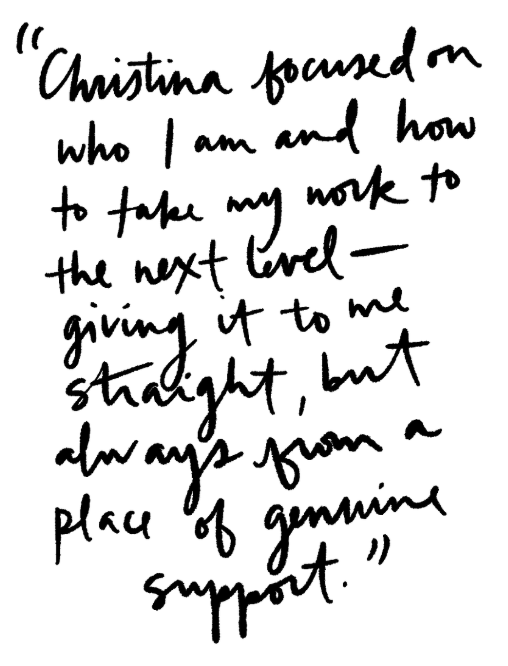 “Christina focused on
who I am and how
to take my work to
the next level—
giving it to me
straight, but
always from a
place of genuine
support.”